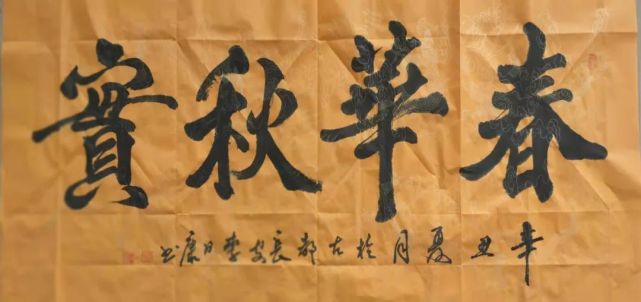 春華秋實
辛丑夏月於古都長安李日康书